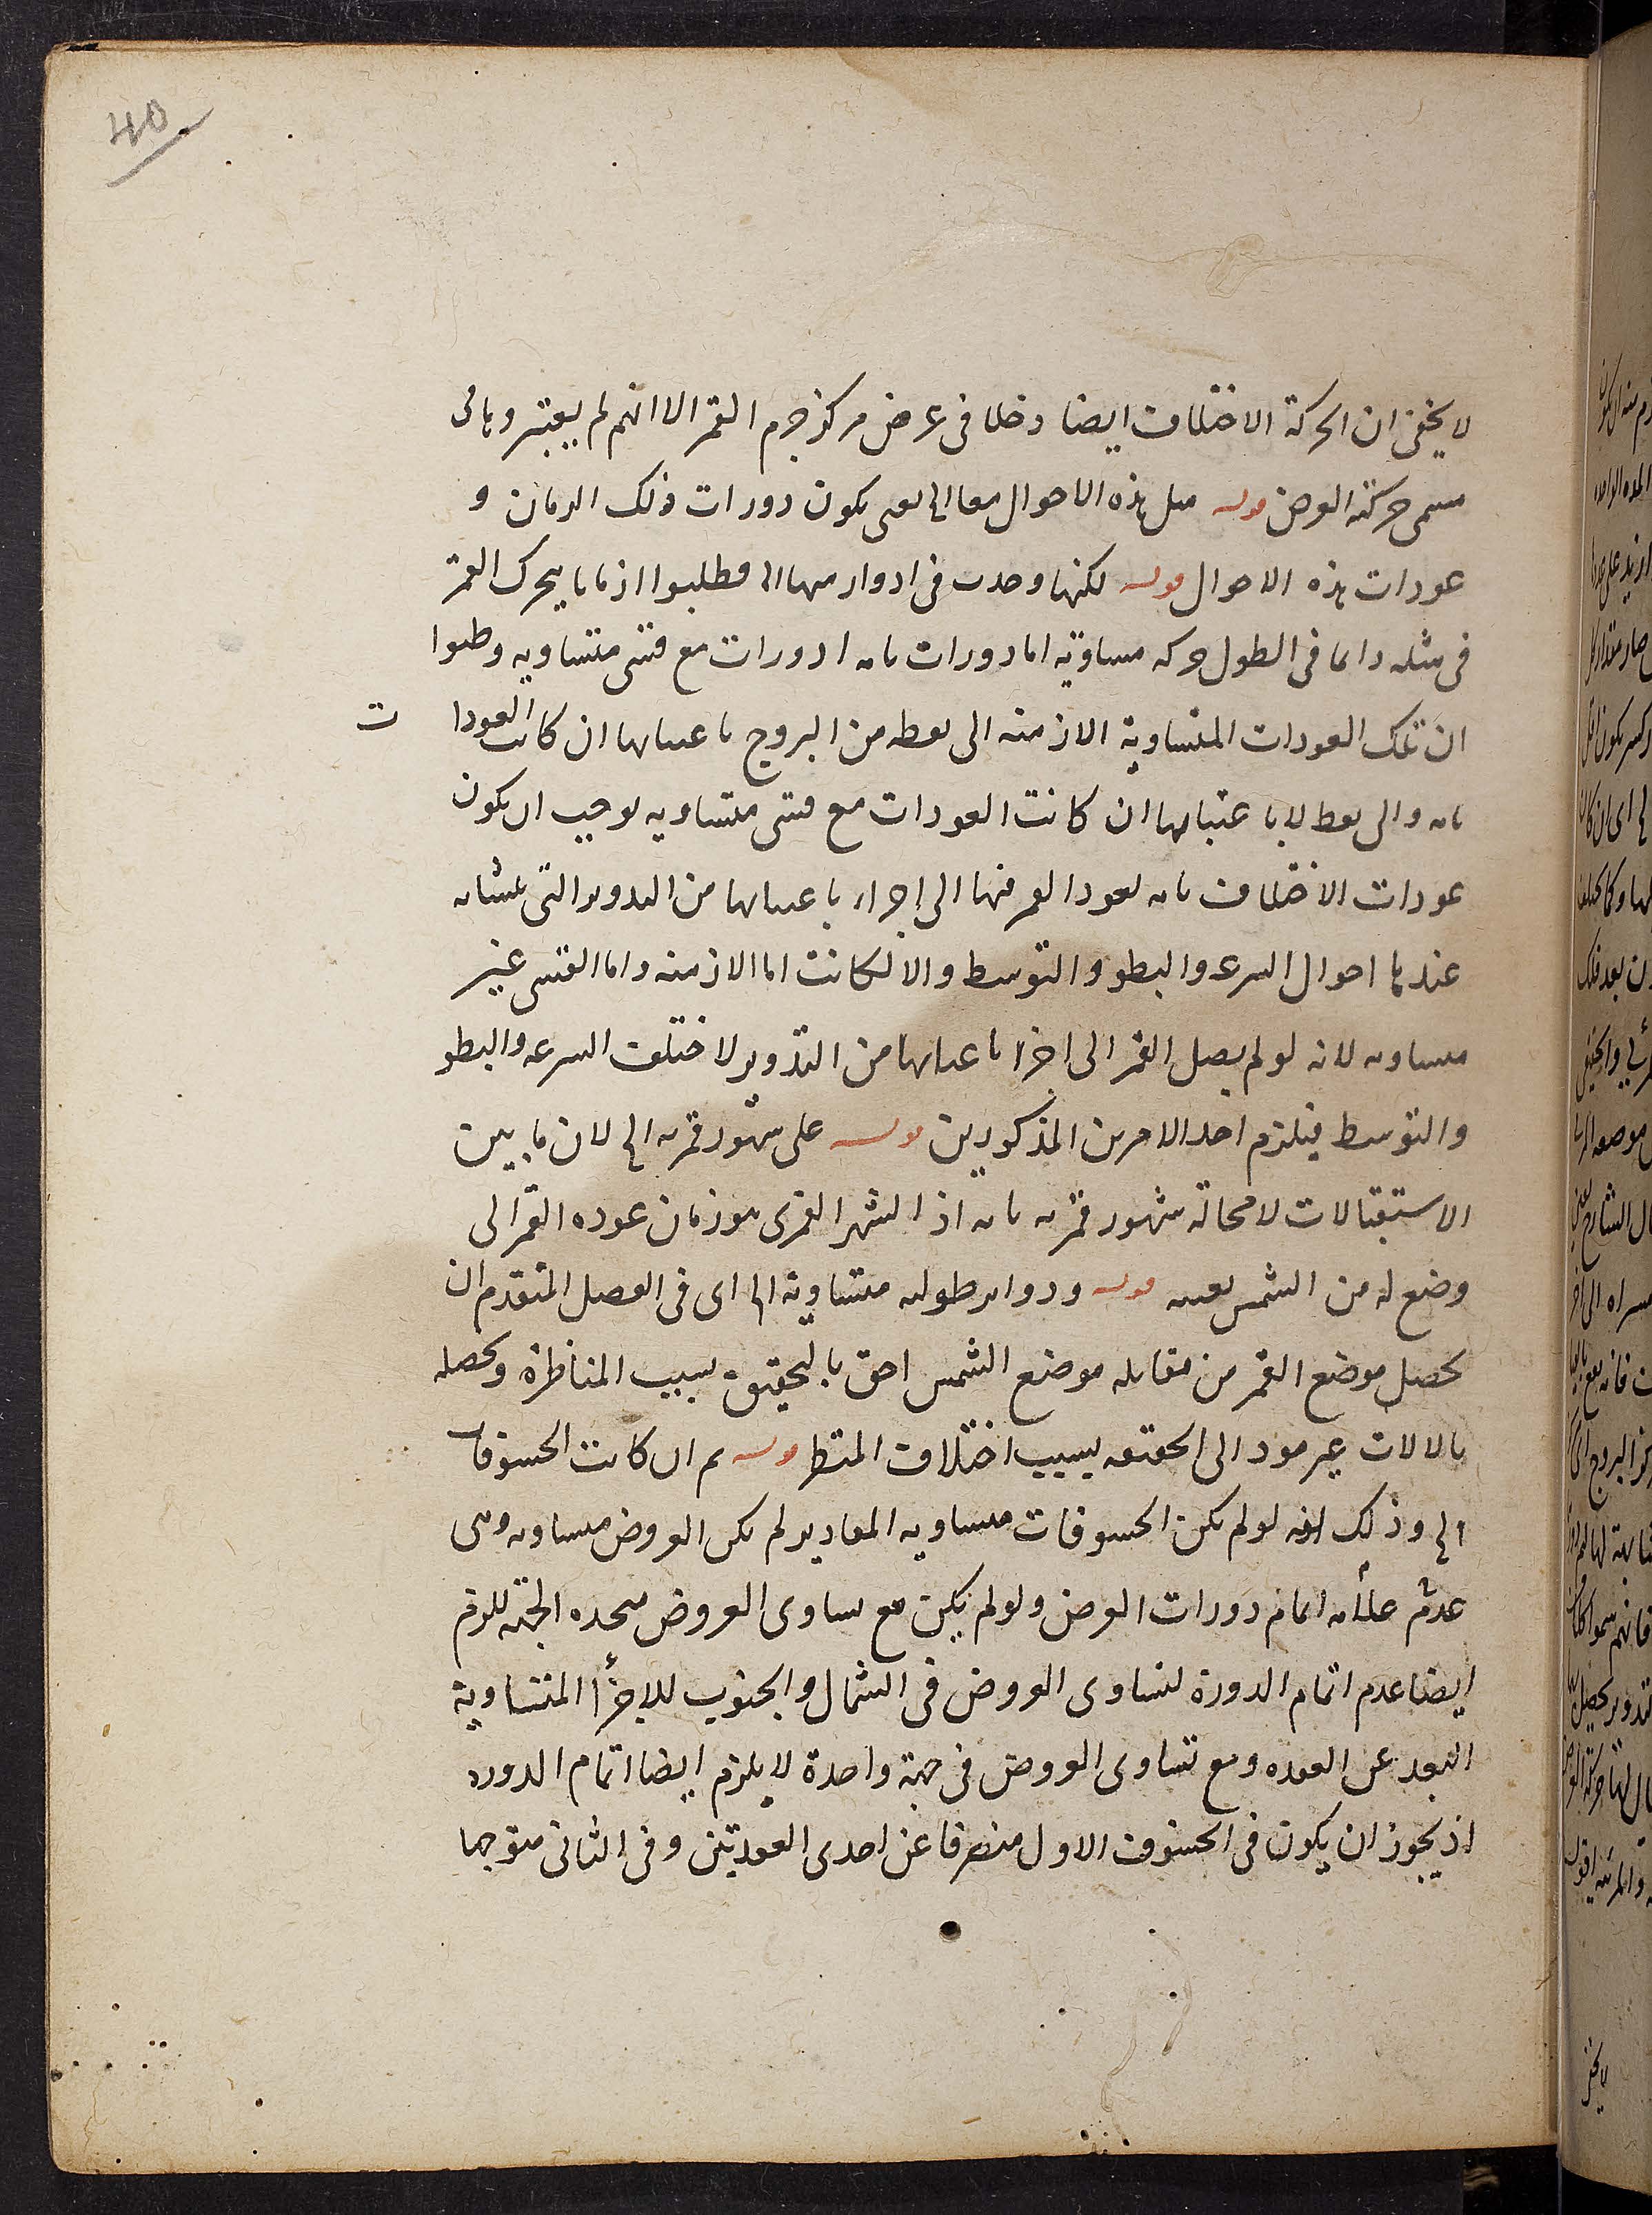 40
لا يخفى ان الحركة الاختلاف ايضا دخلا فى عرض مركز جرم القمر الا انهم لم يعتبروبانى
مسمى حركته العرض قوله مثل هذه الاحوال معا الخ يعنى يكون دورات ذلك الزمان و
عودات هذه الاحوال قوله لكنها وجدت فى ادوار منها الخ فطلبوا ازمانا يتحرك القمر
فى مثله دائما فى الطول حركه مساوية اما دورات تامه او دورات مع قسى متساويه وطلبوا
ان تلك العودات المتساوية الازمنه الى نقطه من البروج باعيانها ان كانت العودا ت
تامه والى نقط لا باعيانها ان كانت العودات مع قسى متساويه لوجب ان يكون
عودات الاختلاف تامه لعود القمر فيها الى اجزاء باعيانها من التدوير التى يتشابه
عندها احوال السرعه والبطو والتوسط والا لكانت اما الازمنه واما القسى غير
متساويه لانه لو لم يصل القمر الى اجزا باعيانها من التدوير لاختلف السرعه والبطو
والتوسط فيلزم احد الامرين المذكورين قوله على شهور قمريه الخ لان ما بين
الاستقبالات لا محالة شهور قمريه تامه اذ الشهر القمرى هو زمان عوده القمر الى
وضع له من الشمس بعينه قوله ودواير طوليه متساوية الخ اى فى الفصل المتقدم ان
تحصيل موضع القمر من مقابله موضع الشمس احق بالتحقيق بسبب المناظرة وتحصيله
بالالات غير مود الى الحقيقه بسبب اختلاف المنظر قوله ثم ان كانت الخسوفات
الخ وذلك لانه لو لم يكن الخسوفات متساويه المقادير لم يكن العروض متساويه وهى
عدم علامه اتمام دورات العرض ولو لم يكن مع تساوى العروض متحده الجهه للزم
ايضا عدم اتمام الدورة لتساوى العروض فى الشمال والجنوب للاجزأ المتساوية
البعد عن العقده ومع تساوى العروض فى جهة واحدة لا يلزم ايضا اتمام الدوره
اذ يجوز ان يكون فى الخسوف الاول منصرفا عن احدى العقدتين وفى الثانى متوجها